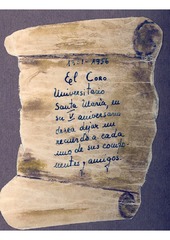 15-1-1956
El Coro
Universitario
Santa María, en
su V aniversario
desea dejar un
recuerdo a cada
uno de sus compo-
nentes y amigos.